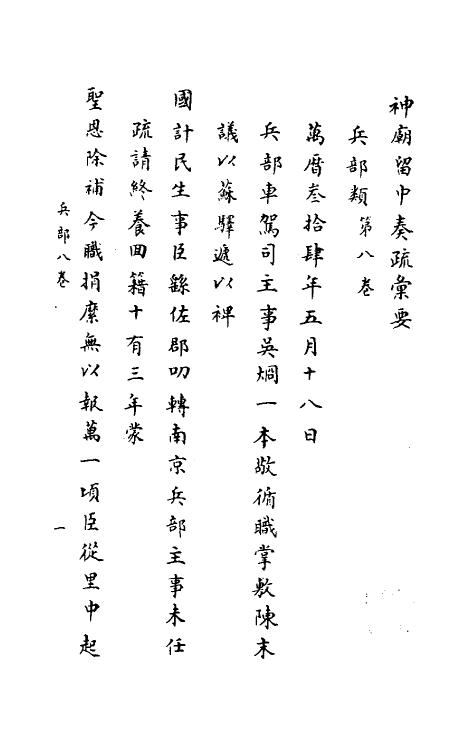 神廟留中奏疏彙要
兵部類第八卷
萬曆叁拾肆年五月十八日
兵部車駕司主事吳烱一本敬循職掌敷陳末
議以蘇驛遞以裨
國計民生事臣繇佐郡叨轉南京兵部主事未任
疏請終養回籍十有三年蒙
聖恩除補今職捐糜無以報萬一頃臣從里中起
兵部八卷
一